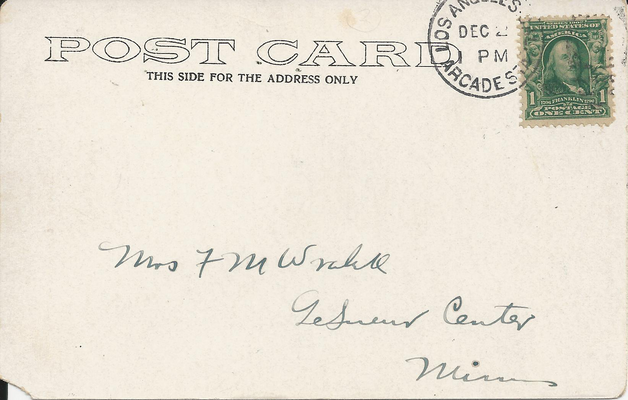 LOS ANGELES.
DEC 2
1 PM
ARCADE ST
SERIES 1902
UNITED STATES OF AMERICA
1 FRANKLIN 1
POSTAGE
ONE CENT
POST CARD
THIS SIDE FOR THE ADDRESS ONLY
Mrs F M
LeSueur Center
Minn